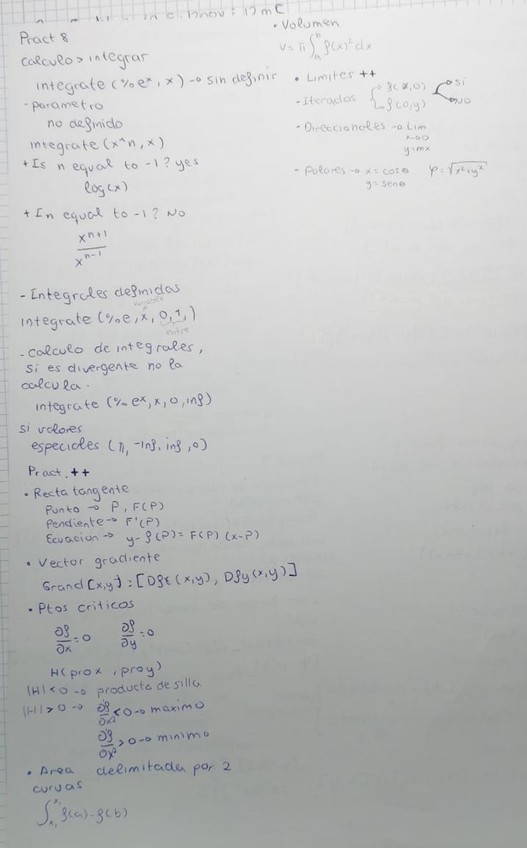 Pract 8
calculo > integrar
integrate (%e^x, x) → sin definir
- parametro
no definido
integrate (x^n, x)
+ Is n equal to -1? yes
log(x)
+ In equal to -1? No
x^{n+1}
x^{n-1}
- Integrales definidas
variable
integrate (%e, x, 0, 1,)
- calculo de integrales,
si es divergente no la
calcula.
integrate (%e^x, x, 0, inf)
si valores
especiales (π, -inf, inf, 0)
Pract. ++
• Recta tangente
Punto → P, F(P)
Pendiente → F'(P)
Ecuacion → y - f(P) = F(P) (x-P)
• Vector gradiente
Grand [x,y] : [Dft(x,y), Dfy(x,y)]
• Ptos criticos
∂f/∂x = 0 ∂f/∂y = 0
H(prox, proy)
|H| < 0 → producto de silla
|H| > 0 → ∂f/∂x² < 0 → maximo
∂f/∂x² > 0 → minimo
• Area delimitada por 2
curvas
∫ f(a) - f(b)
• Volumen
V = π ∫ f(x)² dx
• Limites ++
- Iterados f(x,0) si
f(0,y) no
- Direccionales → lim
x→0
y=mx
- Polares → x = cosθ φ = √x²+y²
y = senθ